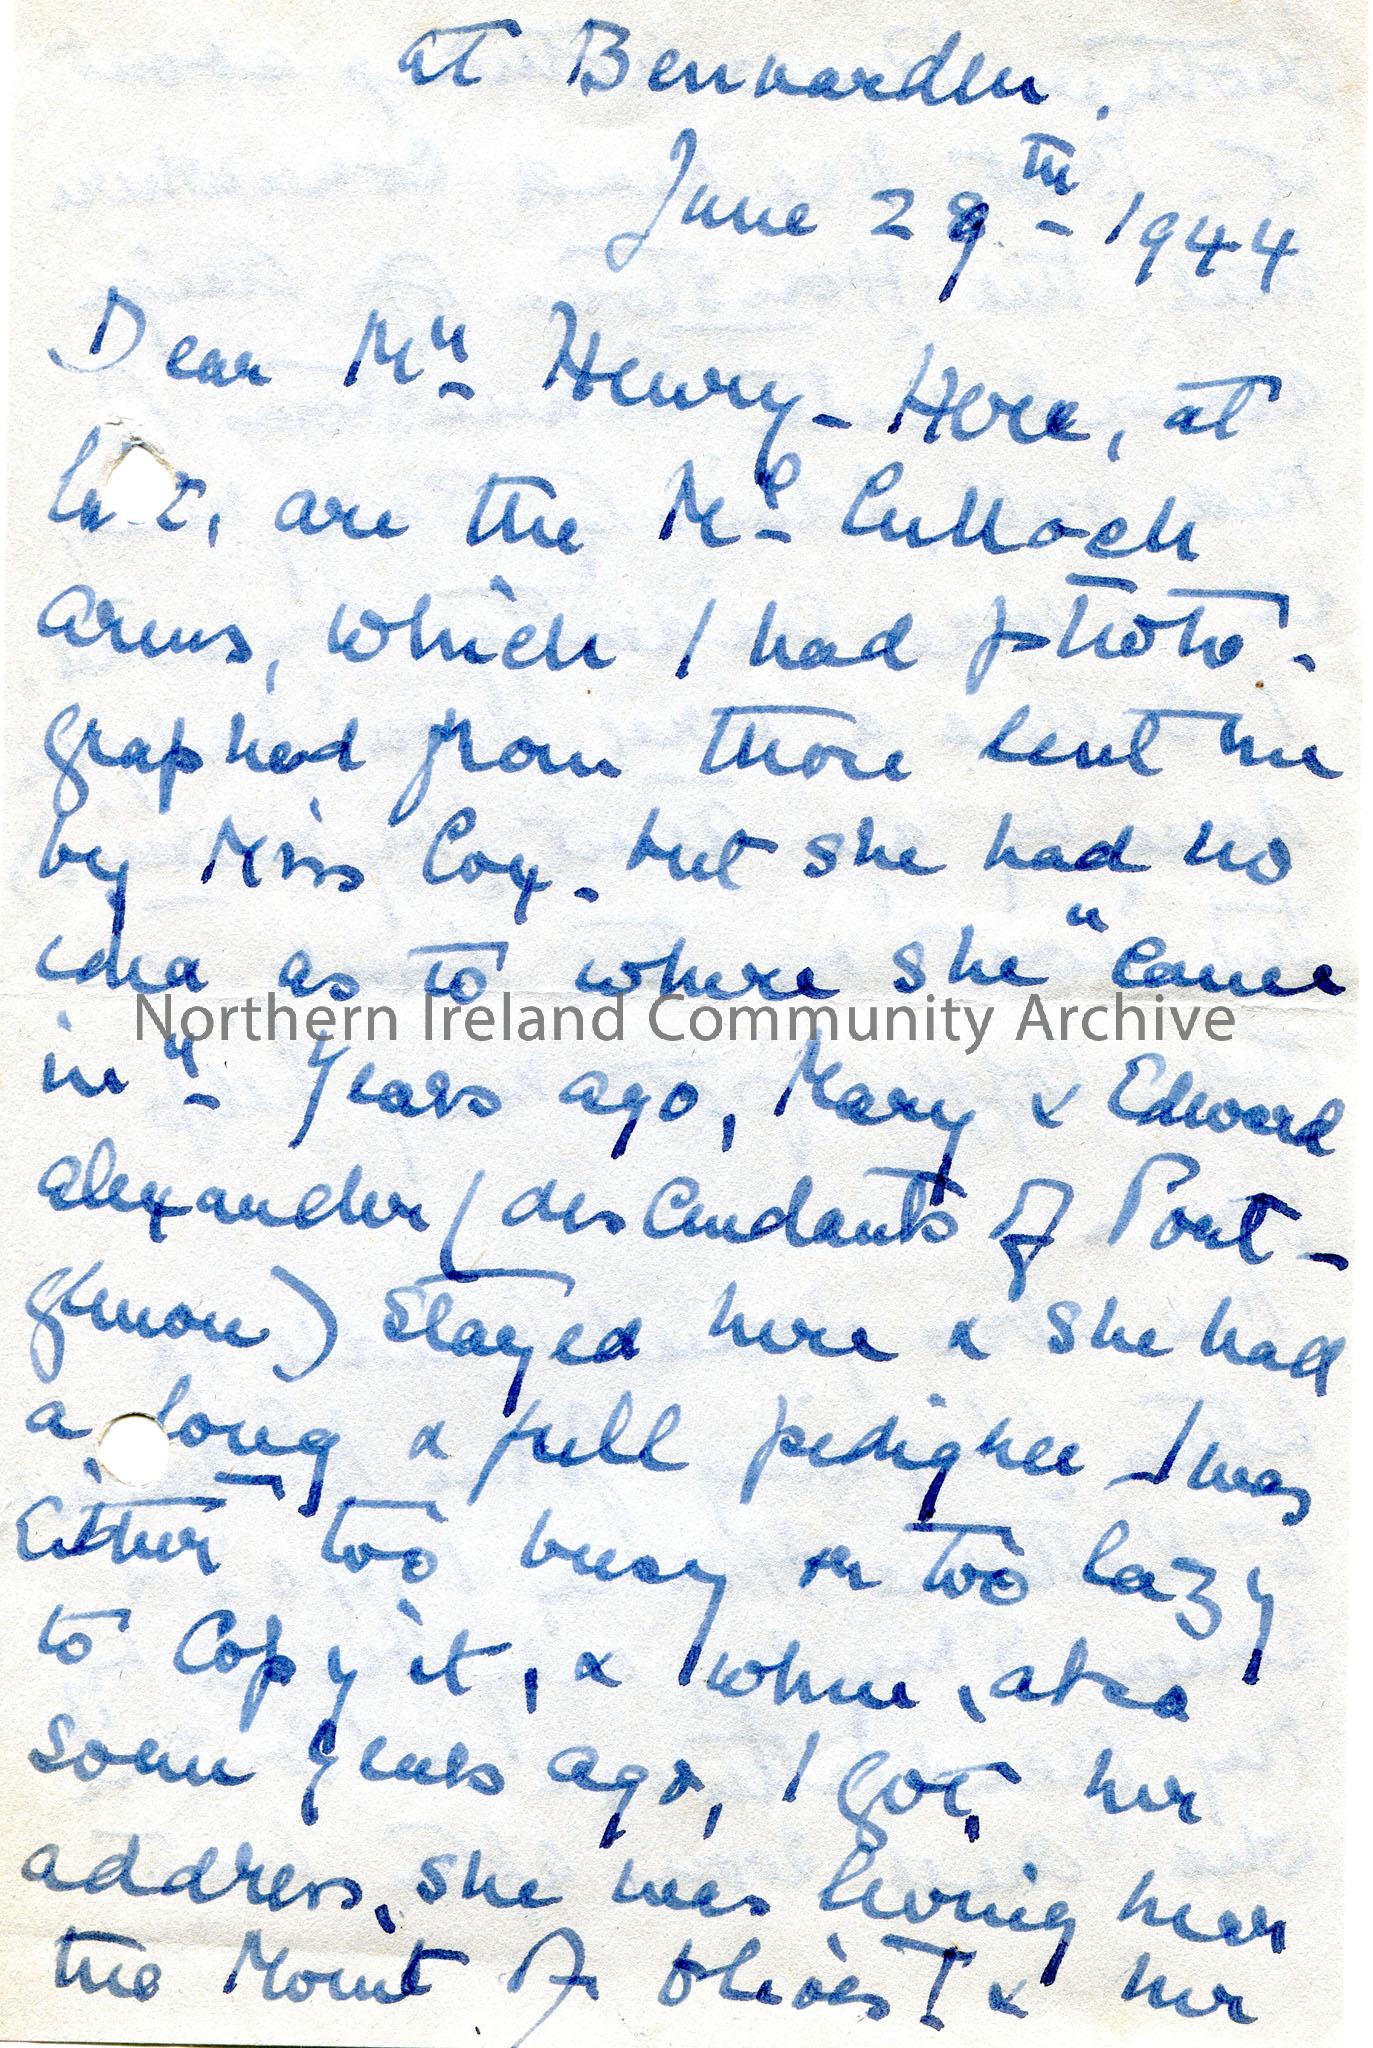 at Benvarden.
June 29th 1944
Dear Mr Henry - Here, at
last, are the McCulloch
arms, which I had photo-
graphed from those lent me
by Miss Cox - but she had no
idea as to where she "came
in" - Years ago, Mary & Edward
Alexander (descendants of Port-
glenone) stayed here & she had
a long & full pedigree - I was
Either too busy or too lazy
to Copy it, & when, also
some years ago, I got her
address, she was living near
the Mount of Olives! & her
Northern Ireland Community Archive